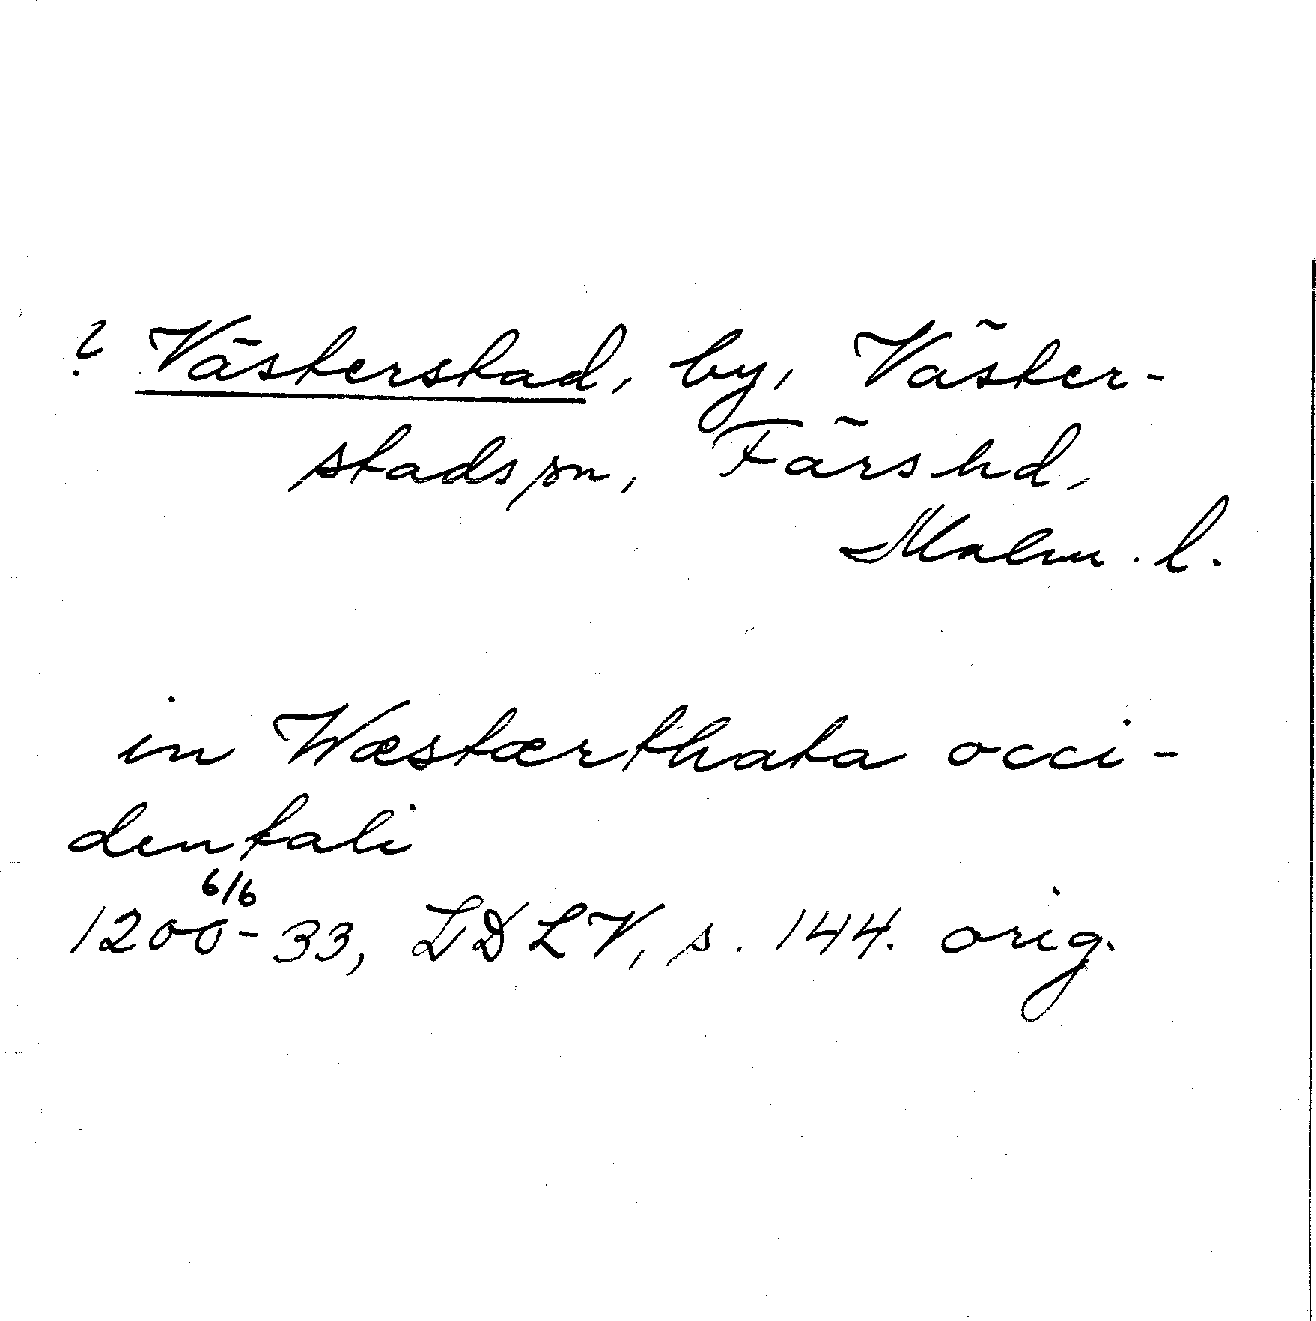 ? Västerstad, by, Väster-
stads sn, Färs hd,
Malm. l.
in Wæstærthata occi-
dentali
6/6
1200-33, LDLV, s. 144. orig.